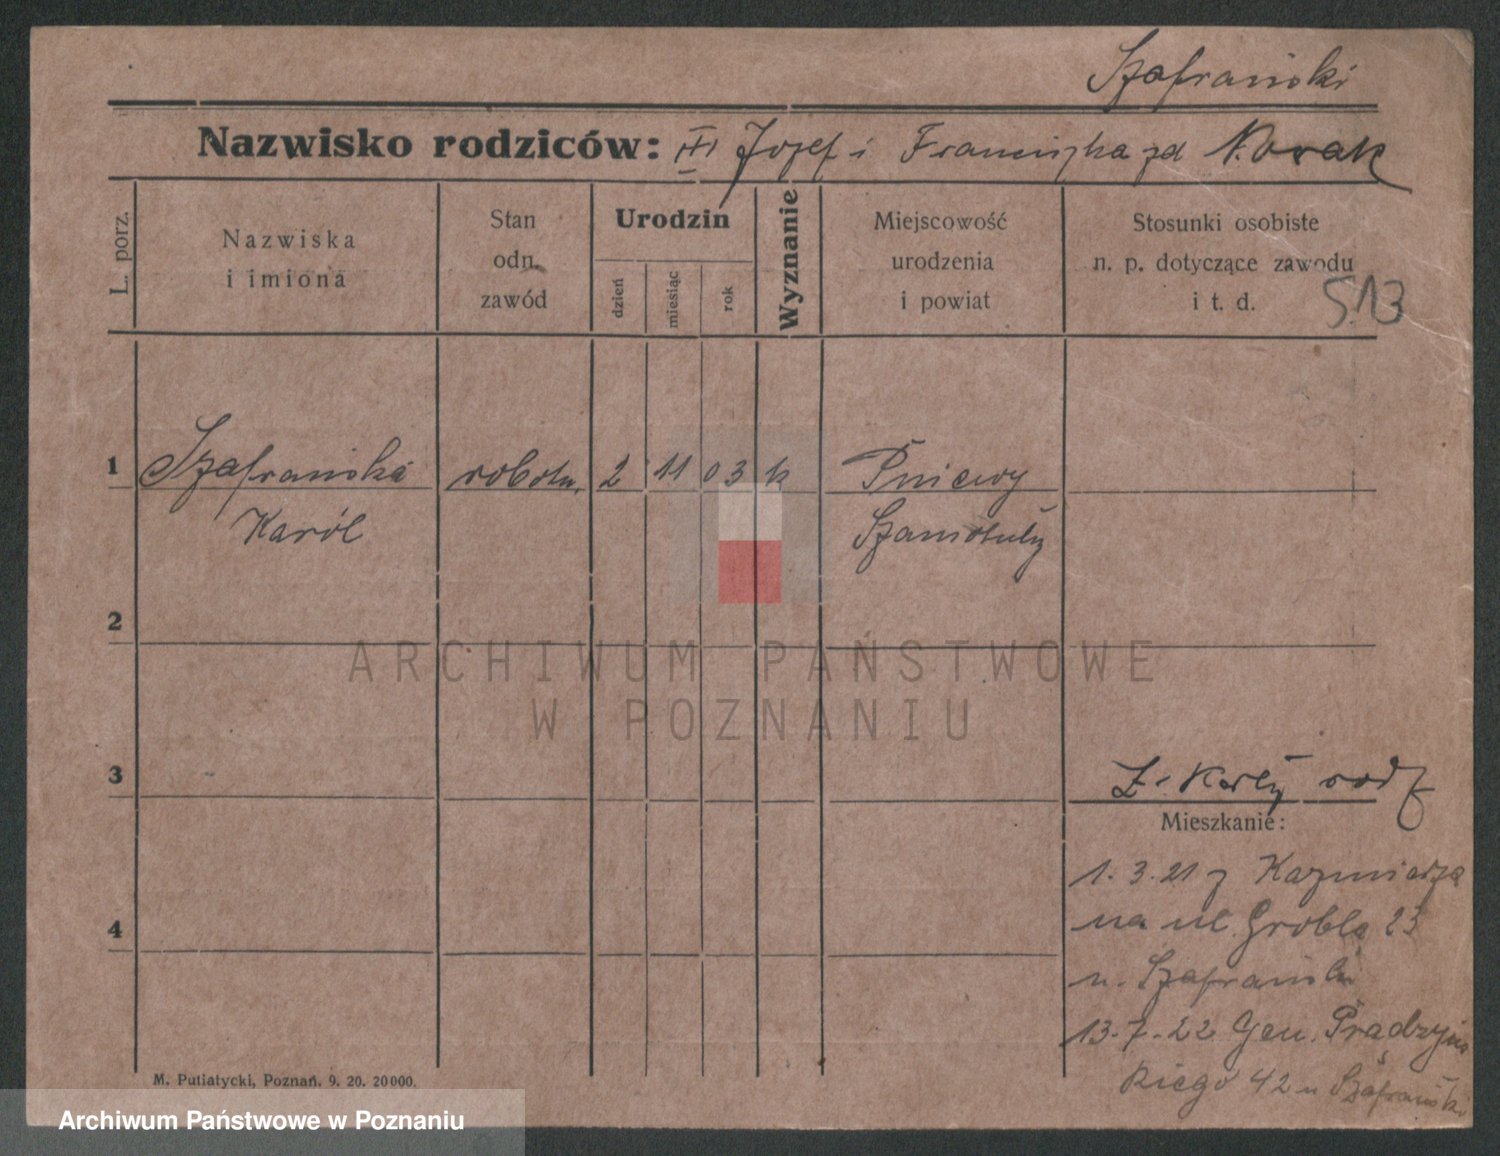 Szafrański
Nazwisko rodziców: III Jozef i Franciszka zd Novak
L. porz.
Nazwiska
i imiona
Stan
odn.
zawód
Urodzin
dzień
miesiąc
rok
Wyznanie
Miejscowość
urodzenia
i powiat
Stosunki osobiste
n. p. dotyczące zawodu
i t. d.
513
1 Szafrański robotn. 2 11 03 k Pniewy
Karól Szamotuły
2
ARCHIWUM PAŃSTWOWE
W POZNANIU
3
Mieszkanie:
1.3.21 z Kazmierza
4
na ul. Grobla 23
u. Szafrański
13-7-22 Gen. Prądzyńs
kiego 42 u Szafrański
M. Putiatycki, Poznań. 9. 20. 20000.
Archiwum Państwowe w Poznaniu